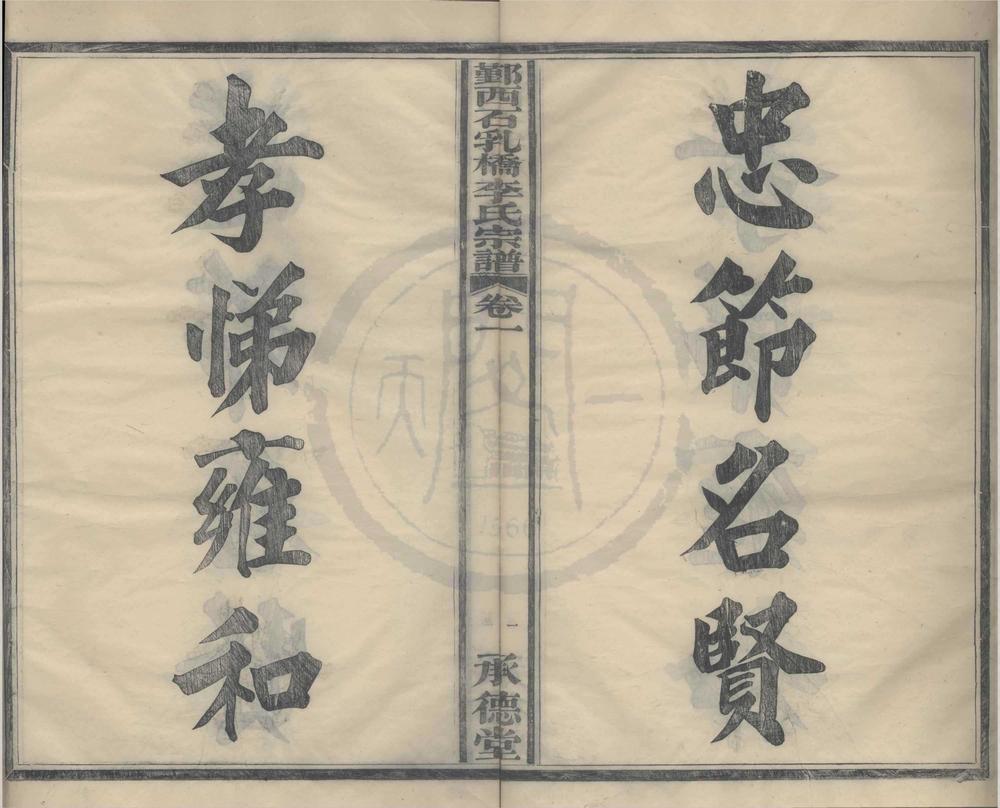 忠節名賢
鄞西石乳橋李氏宗譜 卷一
一
承德堂
孝悌雍和
天一閣
1566